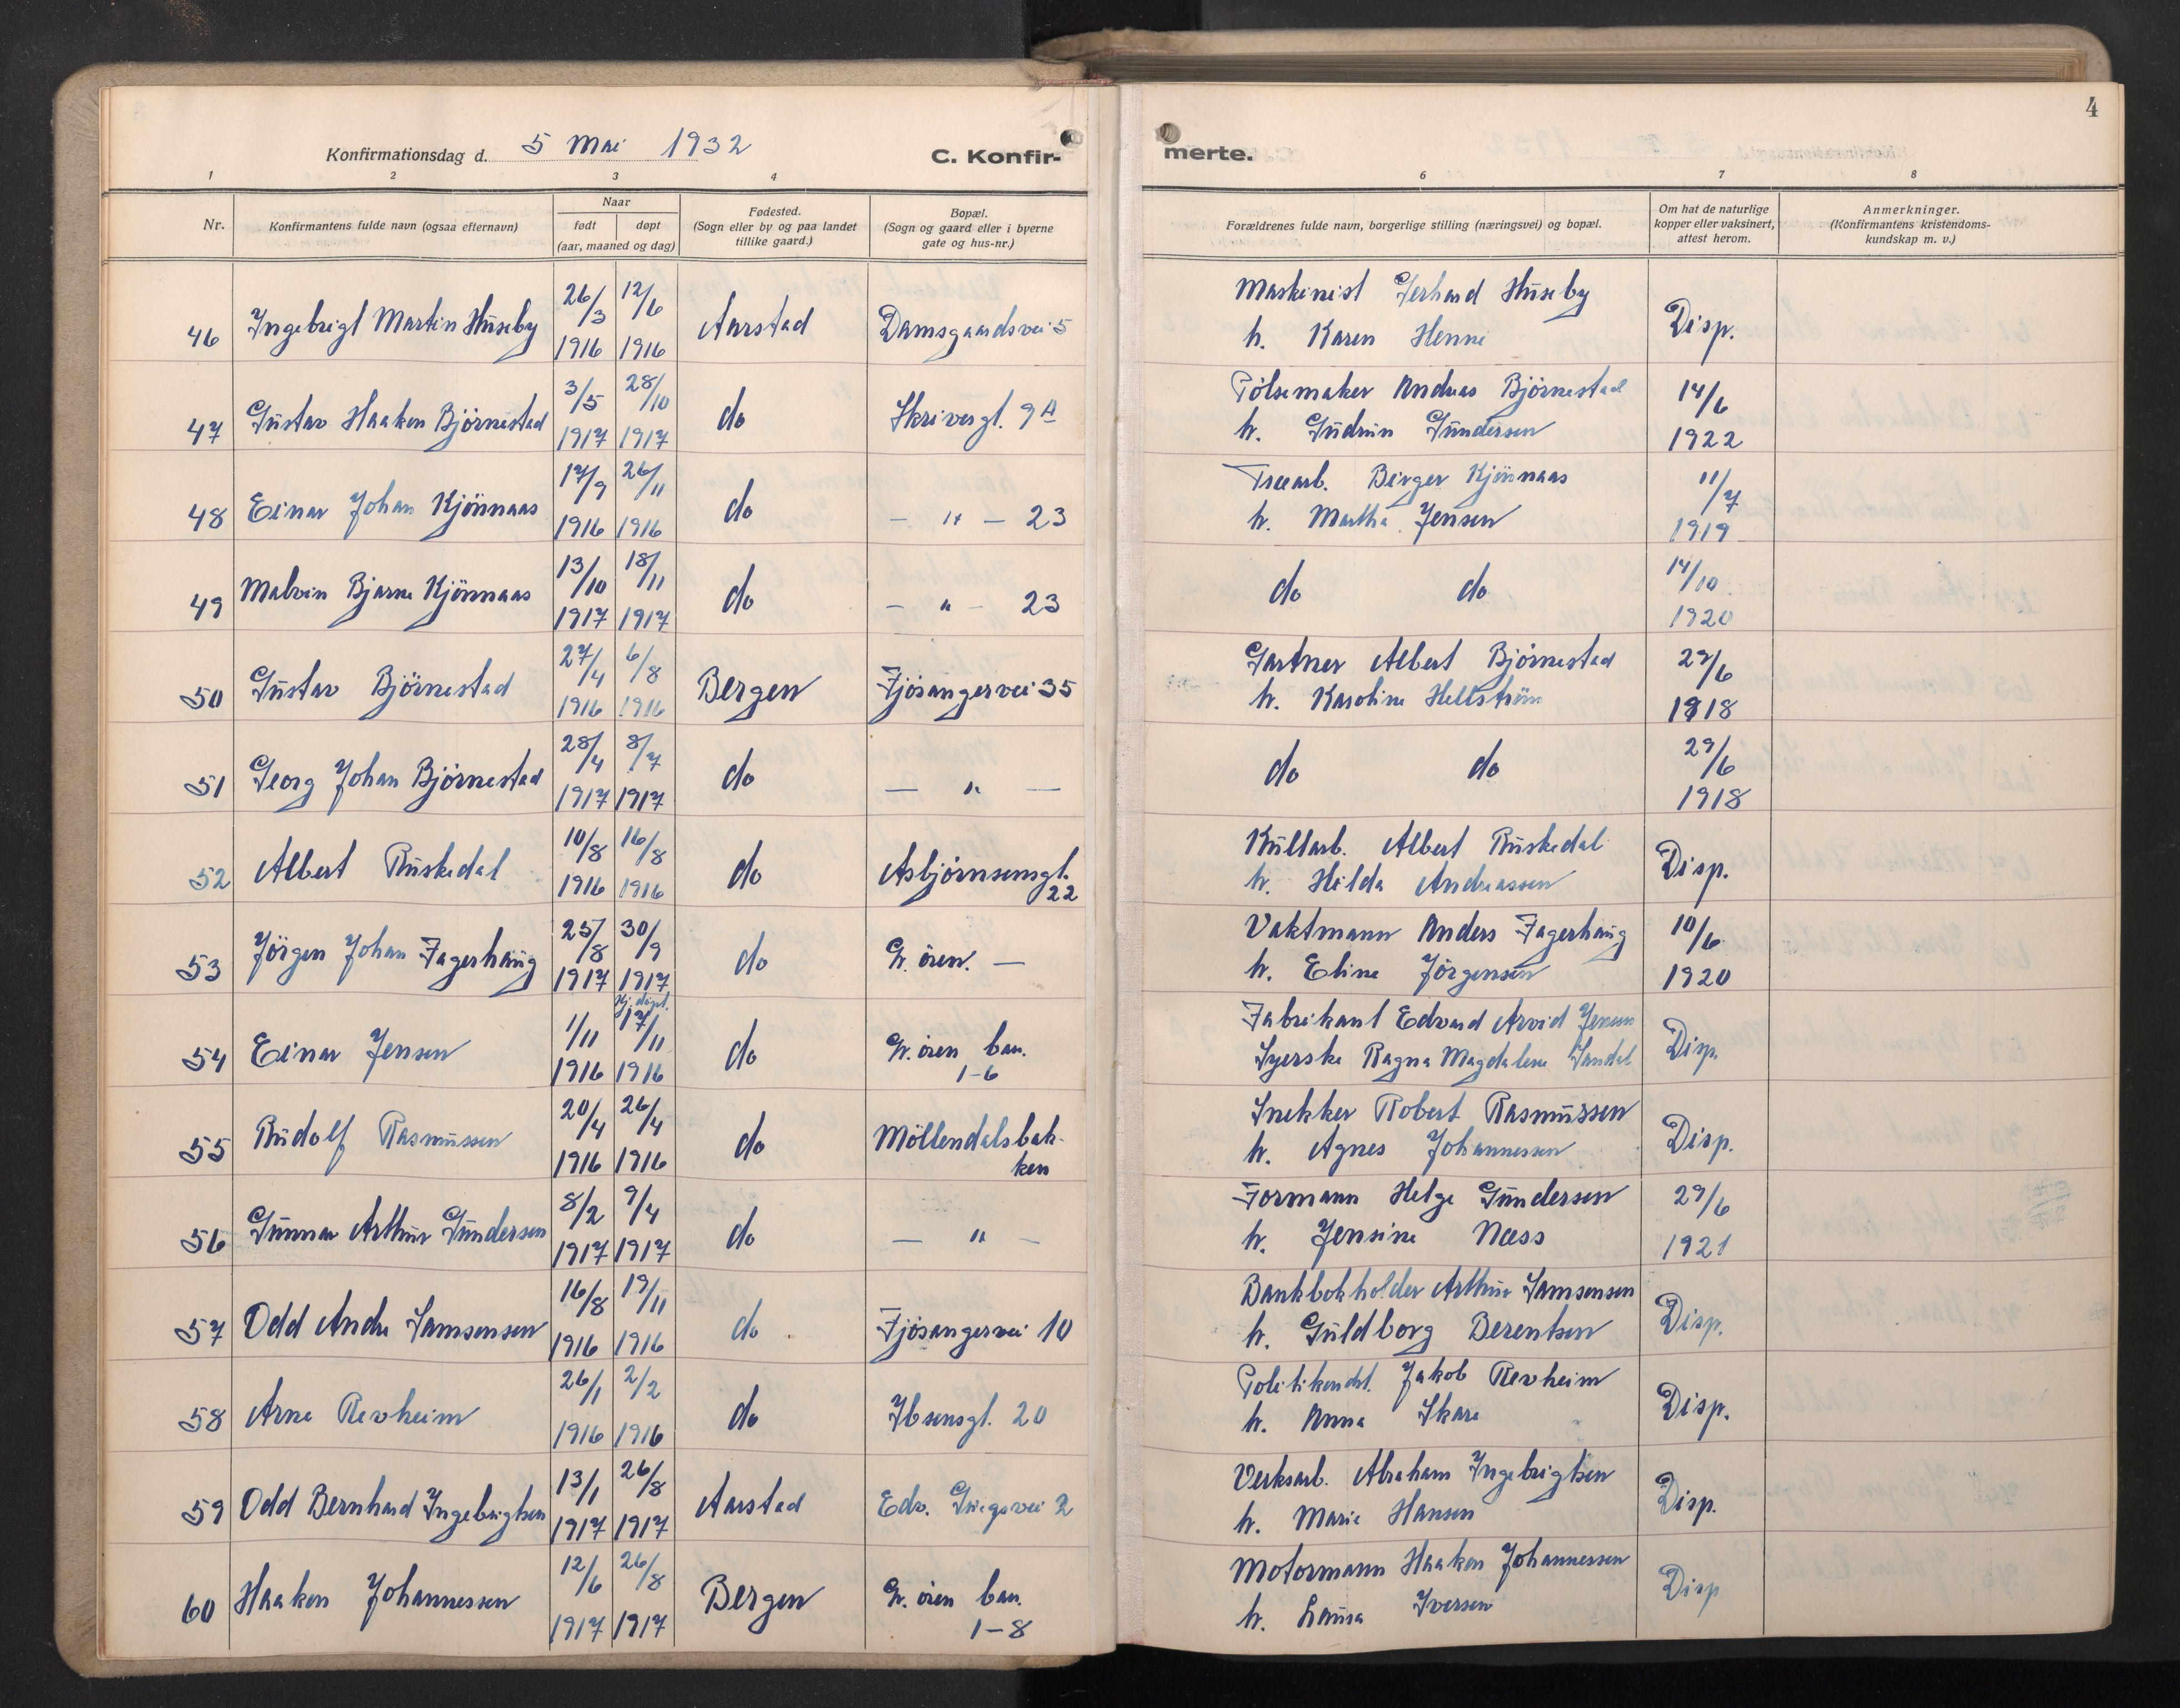 4
Konfirmationsdag d. 5 Mai 1932
C. Konfir-
merte.
1 2 3 4 6 7 8
Nr.
Konfirmantens fulde navn (ogsaa efternavn)
Naar
født døpt
(aar, maaned og dag)
Fødested.
(Sogn eller by og paa landet
tillike gaard.)
Bopæl.
(Sogn og gaard eller i byerne
gate og hus-nr.)
Forældrenes fulde navn, borgerlige stilling (næringsvei) og bopæl.
Om hat de naturlige
kopper eller vaksinert,
attest herom.
Anmerkninger.
(Konfirmantens kristendoms-
kundskap m. v.)
26/3 12/6 Maskinist Gerhard Huseby
46 Ingebrigt Martin Huseby Aarstad Damsgaardsvei 5 Disp.
1916 1916 h. Karen Henne
3/5 28/10 Pølsemaker Andreas Bjørnestad 14/6
47 Gustav Haakon Bjørnestad do Skrivergt. 9 A
1917 1917 h. Gudrun Gundersen 1922
17/9 26/11 Træarb. Birger Kjønnaas 11/7
48 Einar Johan Kjønnaas do — " — 23
1916 1916 h. Martha Jensen 1919
13/10 18/11 14/10
49 Malvin Bjarne Kjønnaas do — " — 23 do do
1917 1917 1920
27/4 6/8 Gartner Albert Bjørnestad 29/6
50 Gustav Bjørnestad Bergen Fjøsangervei 35
1916 1916 h. Karoline Hellstrøm 1918
28/4 8/7 29/6
51 Georg Johan Bjørnestad do — " — do do
1917 1917 1918
10/8 16/8 Kullarb. Albert Ruskedal
52 Albert Ruskedal do Asbjørnsensgt. Disp.
1916 1916 22 h. Hilda Andreassen
25/8 30/9 Vaktmann Anders Fagerhaug 10/6
53 Jørgen Johan Fagerhaug do Gr. øren. —
1917 1917 h. Eline Jørgensen 1920
Hj. døpt.
1/11 17/11 Fabrikant Edvard Arvid Jensen
54 Einar Jensen do Gr. øren bar. Disp.
1916 1916 1-6 Syerske Ragna Magdalene Sandal
20/4 26/4 Snekker Robert Rasmussen
55 Rudolf Rasmussen do Møllendalsbak- Disp.
1916 1916 ken h. Agnes Johannessen
8/2 9/4 Formann Helge Gundersen 29/6
56 Gunnar Arthur Gundersen do — " —
1917 1917 h. Jensine Næss 1921
16/8 19/11 Bankbokholder Arthur Samsonsen
57 Odd Andre Samsonsen do Fjøsangervei 10 Disp.
1916 1916 h. Guldborg Berentsen
26/1 2/2 Politikonst. Jakob Revheim
58 Arne Revheim do Ibsensgt. 20 Disp.
1916 1916 h. Anna Skare
13/1 26/8 Verksarb. Abraham Ingebrigtsen
59 Odd Bernhard Ingebrigtsen Aarstad Edv. Griegsvei 2 Disp.
1917 1917 h. Marie Hansen
12/6 26/8 Motormann Haakon Johannessen
60 Haakon Johannessen Bergen Gr. øren bar. Disp
1917 1917 1-8 h. Laura Iversen